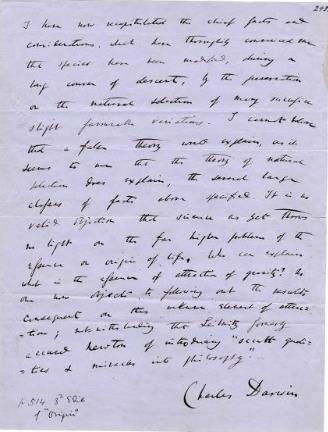 I have now recapitulated the chief facts and
considerations, which have thoroughly convinced me
that species have been modified, during a
long course of descent, by the preservation
or the natural selection of many successive
slight favourable variations. I cannot believe
that a false theory would explain, as it
seems to me that the theory of natural
selection does explain, the several large
classes of facts above specified. It is no
valid objection that science as yet throws
no light on the far higher problem of the
essence or origin of life. Who can explain
what is the essence of attraction of gravity? No
one now objects to following out the results
consequent on this unknown element of attrac-
-tion; notwithstanding that Leibnitz formerly
accused Newton of introducing "occult quali-
-ties & miracles into philosophy."
Charles Darwin
p. 514 3d Edit
of "Origin"